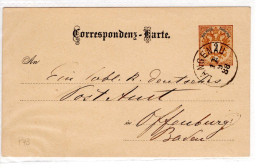 Correspondenz-Karte.
LANGENAU
An
Ein löbl. k. deutsches
Post Amt
in Offenburg
Baden